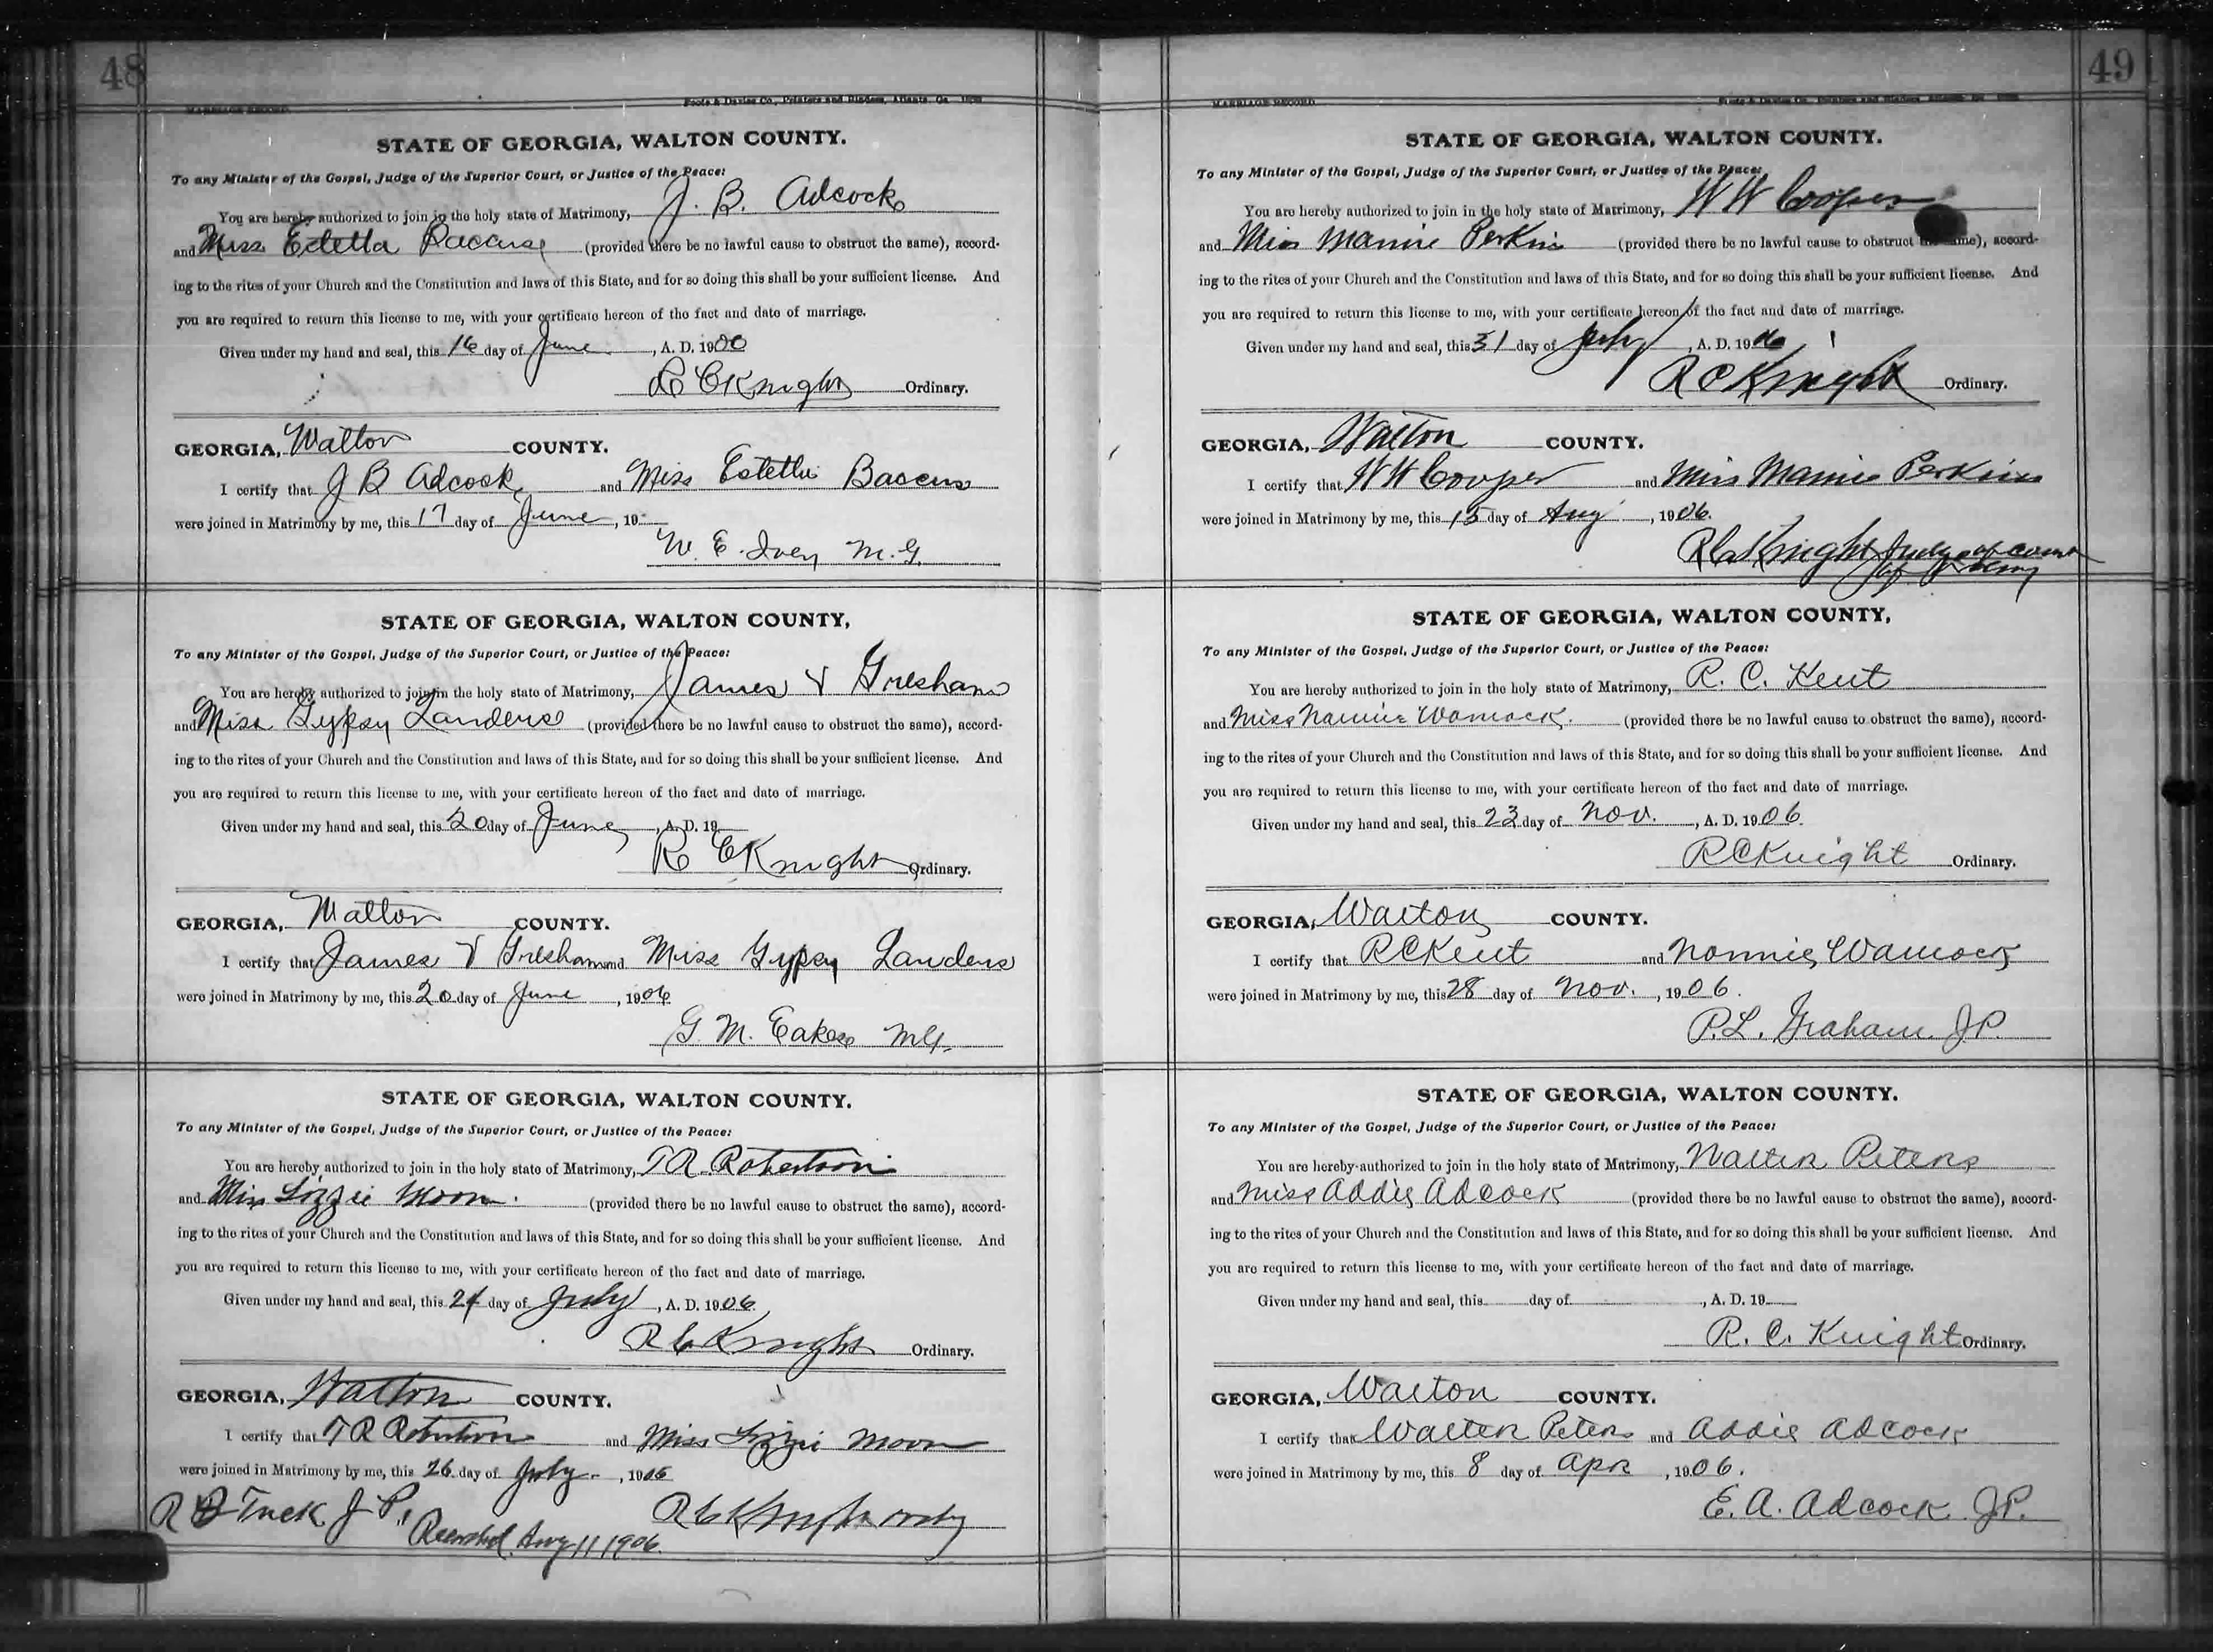 48
MARRIAGE RECORD
Foote & Davies Co., Printers and Binders, Atlanta, Ga.
STATE OF GEORGIA, WALTON COUNTY.
To any Minister of the Gospel, Judge of the Superior Court, or Justice of the Peace:
You are hereby authorized to join in the holy state of Matrimony, J. B. Adcock
and Miss Estella (provided there be no lawful cause to obstruct the same), accord-
ing to the rites of your Church and the Constitution and laws of this State, and for so doing this shall be your sufficient license. And
you are required to return this license to me, with your certificate hereon of the fact and date of marriage.
Given under my hand and seal, this 16 day of June, A. D. 1906
R C Knight Ordinary.
GEORGIA, Walton COUNTY.
I certify that J B Adcock and Miss Baccus
were joined in Matrimony by me, this 17 day of June, 19
W. E. Ivey M. G.
STATE OF GEORGIA, WALTON COUNTY,
To any Minister of the Gospel, Judge of the Superior Court, or Justice of the Peace:
You are hereby authorized to join in the holy state of Matrimony, James V Gresham
and Miss Gypsy Landers (provided there be no lawful cause to obstruct the same), accord-
ing to the rites of your Church and the Constitution and laws of this State, and for so doing this shall be your sufficient license. And
you are required to return this license to me, with your certificate hereon of the fact and date of marriage.
Given under my hand and seal, this 20 day of June, A. D. 19
R C Knight Ordinary.
GEORGIA, Walton COUNTY.
I certify that James V Gresham and Miss Gypsy Landers
were joined in Matrimony by me, this 20 day of June, 1906
G. M. Eakes M.G.
STATE OF GEORGIA, WALTON COUNTY.
To any Minister of the Gospel, Judge of the Superior Court, or Justice of the Peace:
You are hereby authorized to join in the holy state of Matrimony, T R Robertson
and Miss Lizzie Moon. (provided there be no lawful cause to obstruct the same), accord-
ing to the rites of your Church and the Constitution and laws of this State, and for so doing this shall be your sufficient license. And
you are required to return this license to me, with your certificate hereon of the fact and date of marriage.
Given under my hand and seal, this 24 day of July, A. D. 1906
R C Knight Ordinary.
GEORGIA, Walton COUNTY.
I certify that T R Robertson and Miss Lizzie Moon
were joined in Matrimony by me, this 26 day of July, 1906
R Tuck J P, R C Knight ordy
Recorded Aug 11 1906.
49
MARRIAGE RECORD
STATE OF GEORGIA, WALTON COUNTY.
To any Minister of the Gospel, Judge of the Superior Court, or Justice of the Peace:
You are hereby authorized to join in the holy state of Matrimony, W W Cooper
and Miss Mamie Perkins (provided there be no lawful cause to obstruct the same), accord-
ing to the rites of your Church and the Constitution and laws of this State, and for so doing this shall be your sufficient license. And
you are required to return this license to me, with your certificate hereon of the fact and date of marriage.
Given under my hand and seal, this 31 day of July, A. D. 1906
R C Knight Ordinary.
GEORGIA, Walton COUNTY.
I certify that W W Cooper and Miss Mamie Perkins
were joined in Matrimony by me, this 15 day of Aug, 1906.
R C Knight Judge of court
of
STATE OF GEORGIA, WALTON COUNTY,
To any Minister of the Gospel, Judge of the Superior Court, or Justice of the Peace:
You are hereby authorized to join in the holy state of Matrimony, R. C. Kent
and Miss Nannie (provided there be no lawful cause to obstruct the same), accord-
ing to the rites of your Church and the Constitution and laws of this State, and for so doing this shall be your sufficient license. And
you are required to return this license to me, with your certificate hereon of the fact and date of marriage.
Given under my hand and seal, this 23 day of Nov., A. D. 1906.
R C Knight Ordinary.
GEORGIA, Walton COUNTY.
I certify that R C Kent and Nonnie
were joined in Matrimony by me, this 28 day of Nov., 1906.
P. L. Graham. J P.
STATE OF GEORGIA, WALTON COUNTY.
To any Minister of the Gospel, Judge of the Superior Court, or Justice of the Peace:
You are hereby authorized to join in the holy state of Matrimony, Walter Peters
and Miss Addie Adcock (provided there be no lawful cause to obstruct the same), accord-
ing to the rites of your Church and the Constitution and laws of this State, and for so doing this shall be your sufficient license. And
you are required to return this license to me, with your certificate hereon of the fact and date of marriage.
Given under my hand and seal, this day of , A. D. 19
R. C. Knight Ordinary.
GEORGIA, Walton COUNTY.
I certify that Walter Peters and Addie Adcock
were joined in Matrimony by me, this 8 day of Apr, 1906.
E. A. Adcock JP.